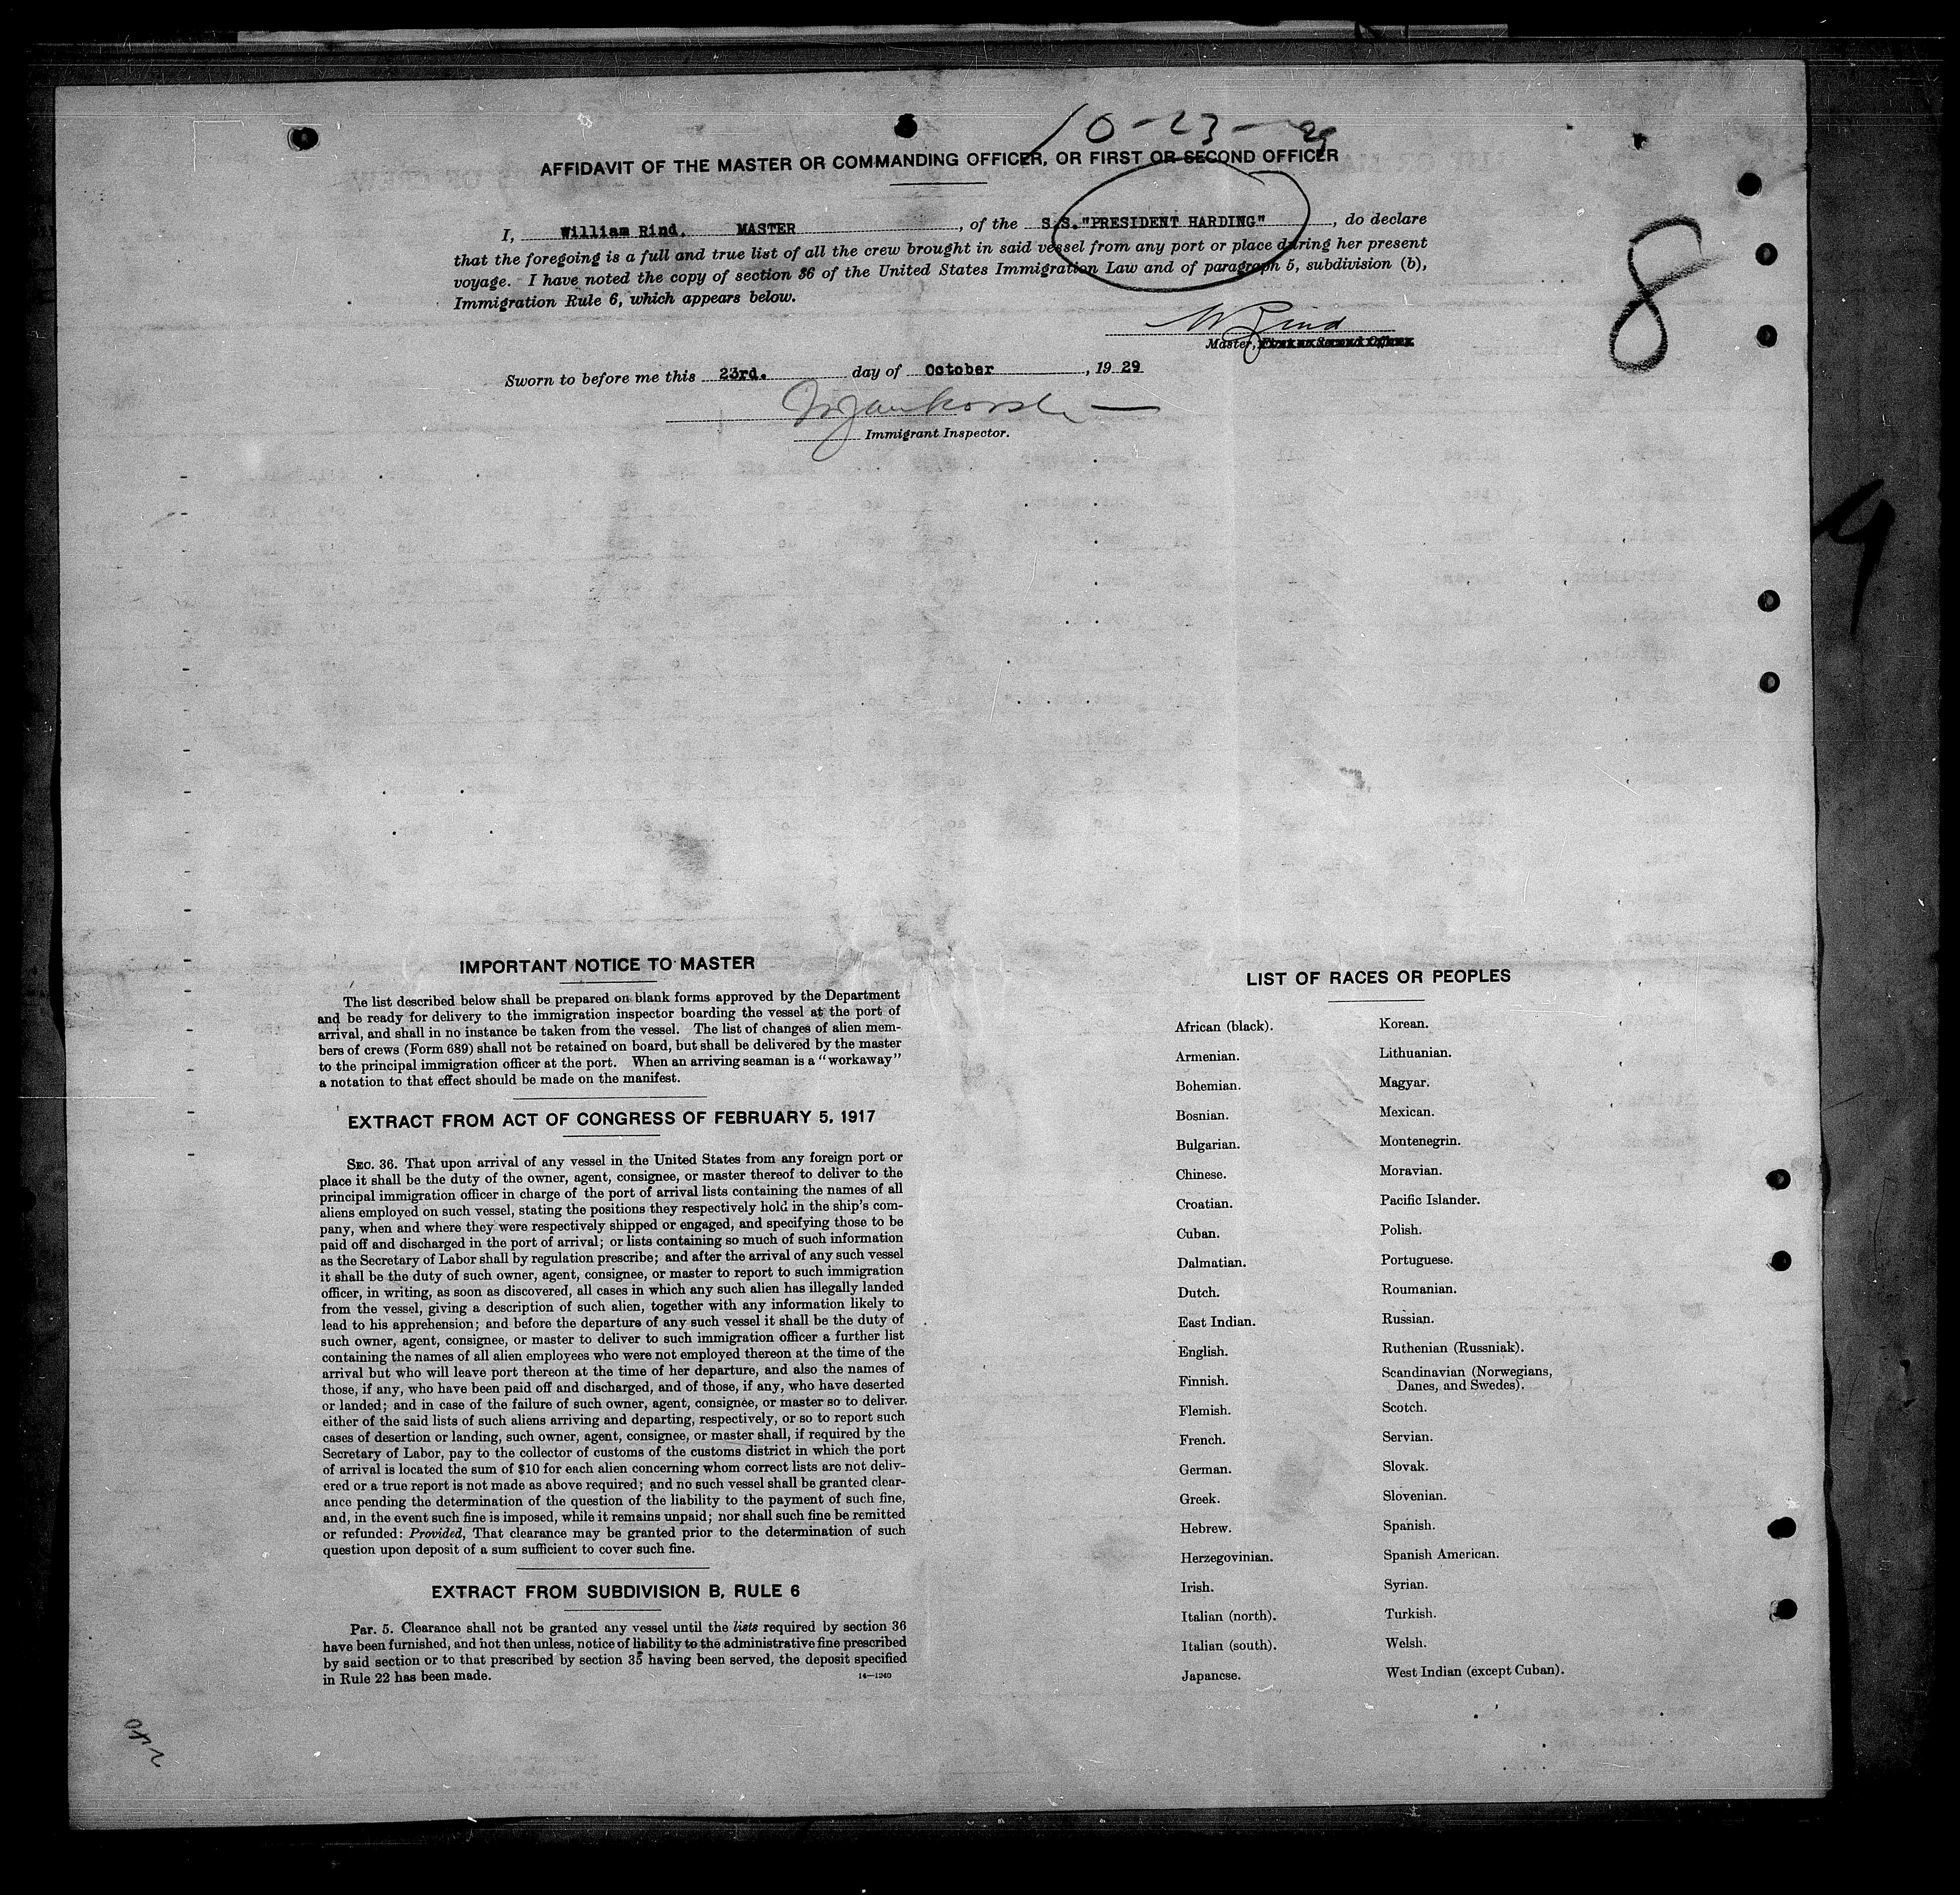 10-23-29
AFFIDAVIT OF THE MASTER OR COMMANDING OFFICER, OR FIRST OR SECOND OFFICER
I, William Rind. MASTER, of the S.S."PRESIDENT HARDING", do declare
that the foregoing is a full and true list of all the crew brought in said vessel from any port or place during her present
voyage. I have noted the copy of section 36 of the United States Immigration Law and of paragraph 5, subdivision (b),
Immigration Rule 6, which appears below.
8
W Rind
Master, First or Second Officer.
Sworn to before me this 23rd. day of October, 1929
Immigrant Inspector.
9
IMPORTANT NOTICE TO MASTER
The list described below shall be prepared on blank forms approved by the Department
and be ready for delivery to the immigration inspector boarding the vessel at the port of
arrival, and shall in no instance be taken from the vessel. The list of changes of alien mem-
bers of crews (Form 689) shall not be retained on board, but shall be delivered by the master
to the principal immigration officer at the port. When an arriving seaman is a "workaway"
a notation to that effect should be made on the manifest.
EXTRACT FROM ACT OF CONGRESS OF FEBRUARY 5, 1917
SEC. 36. That upon arrival of any vessel in the United States from any foreign port or
place it shall be the duty of the owner, agent, consignee, or master thereof to deliver to the
principal immigration officer in charge of the port of arrival lists containing the names of all
aliens employed on such vessel, stating the positions they respectively hold in the ship's com-
pany, when and where they were respectively shipped or engaged, and specifying those to be
paid off and discharged in the port of arrival; or lists containing so much of such information
as the Secretary of Labor shall by regulation prescribe; and after the arrival of any such vessel
it shall be the duty of such owner, agent, consignee, or master to report to such immigration
officer, in writing, as soon as discovered, all cases in which any such alien has illegally landed
from the vessel, giving a description of such alien, together with any information likely to
lead to his apprehension; and before the departure of any such vessel it shall be the duty of
such owner, agent, consignee, or master to deliver to such immigration officer a further list
containing the names of all alien employees who were not employed thereon at the time of the
arrival but who will leave port thereon at the time of her departure, and also the names of
those, if any, who have been paid off and discharged, and of those, if any, who have deserted
or landed; and in case of the failure of such owner, agent, consignee, or master so to deliver
either of the said lists of such aliens arriving and departing, respectively, or so to report such
cases of desertion or landing, such owner, agent, consignee, or master shall, if required by the
Secretary of Labor, pay to the collector of customs of the customs district in which the port
of arrival is located the sum of $10 for each alien concerning whom correct lists are not deliv-
ered or a true report is not made as above required; and no such vessel shall be granted clear-
ance pending the determination of the question of the liability to the payment of such fine,
and, in the event such fine is imposed, while it remains unpaid; nor shall such fine be remitted
or refunded: Provided, That clearance may be granted prior to the determination of such
question upon deposit of a sum sufficient to cover such fine.
EXTRACT FROM SUBDIVISION B, RULE 6
Par. 5. Clearance shall not be granted any vessel until the lists required by section 36
have been furnished, and not then unless, notice of liability to the administrative fine prescribed
by said section or to that prescribed by section 35 having been served, the deposit specified
in Rule 22 has been made.
14—1240
LIST OF RACES OR PEOPLES
African (black).
Armenian.
Bohemian.
Bosnian.
Bulgarian.
Chinese.
Croatian.
Cuban.
Dalmatian.
Dutch.
East Indian.
English.
Finnish.
Flemish.
French.
German.
Greek.
Hebrew.
Herzegovinian.
Irish.
Italian (north).
Italian (south).
Japanese.
Korean.
Lithuanian.
Magyar.
Mexican.
Montenegrin.
Moravian.
Pacific Islander.
Polish.
Portuguese.
Roumanian.
Russian.
Ruthenian (Russniak).
Scandinavian (Norwegians,
Danes, and Swedes).
Scotch.
Servian.
Slovak.
Slovenian.
Spanish.
Spanish American.
Syrian.
Turkish.
Welsh.
West Indian (except Cuban).